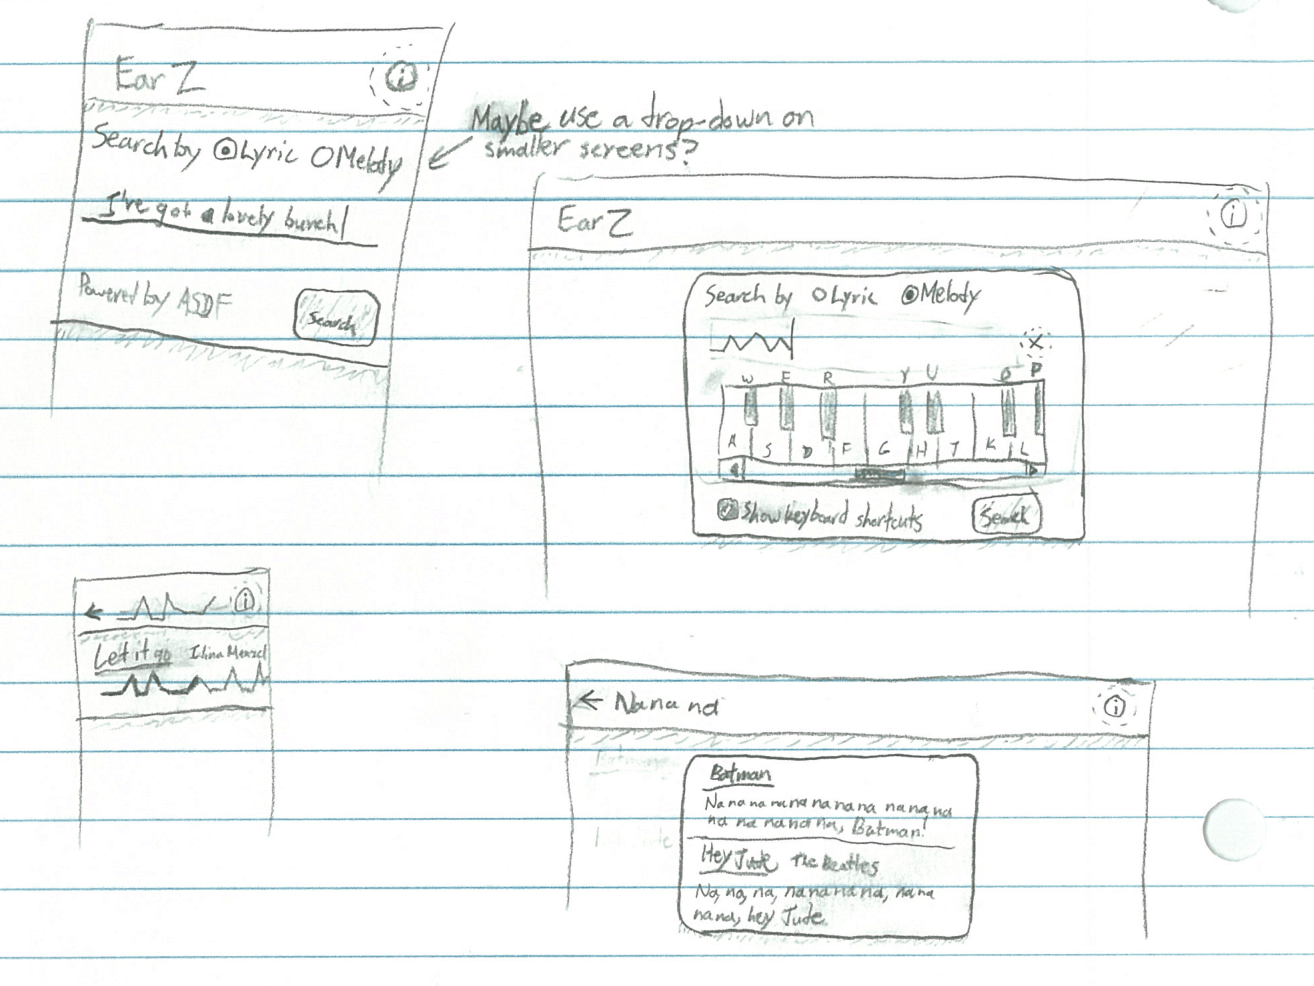 EarZ
Search by Lyric Melody
I've got a lovely bunch
Powered by ASDF
Search
Maybe use a drop-down on
smaller screens?
EarZ
Search by Lyric Melody
W E R Y U O P
A S D F G H J K L
Show keyboard shortcuts
Search
Let it go Idina Menzel
Na na na
Batman
Na na na na na na na na na na na
na na na na na, Batman!
Hey Jude The Beatles
Na, na, na, na na na na, na na
na na, hey Jude